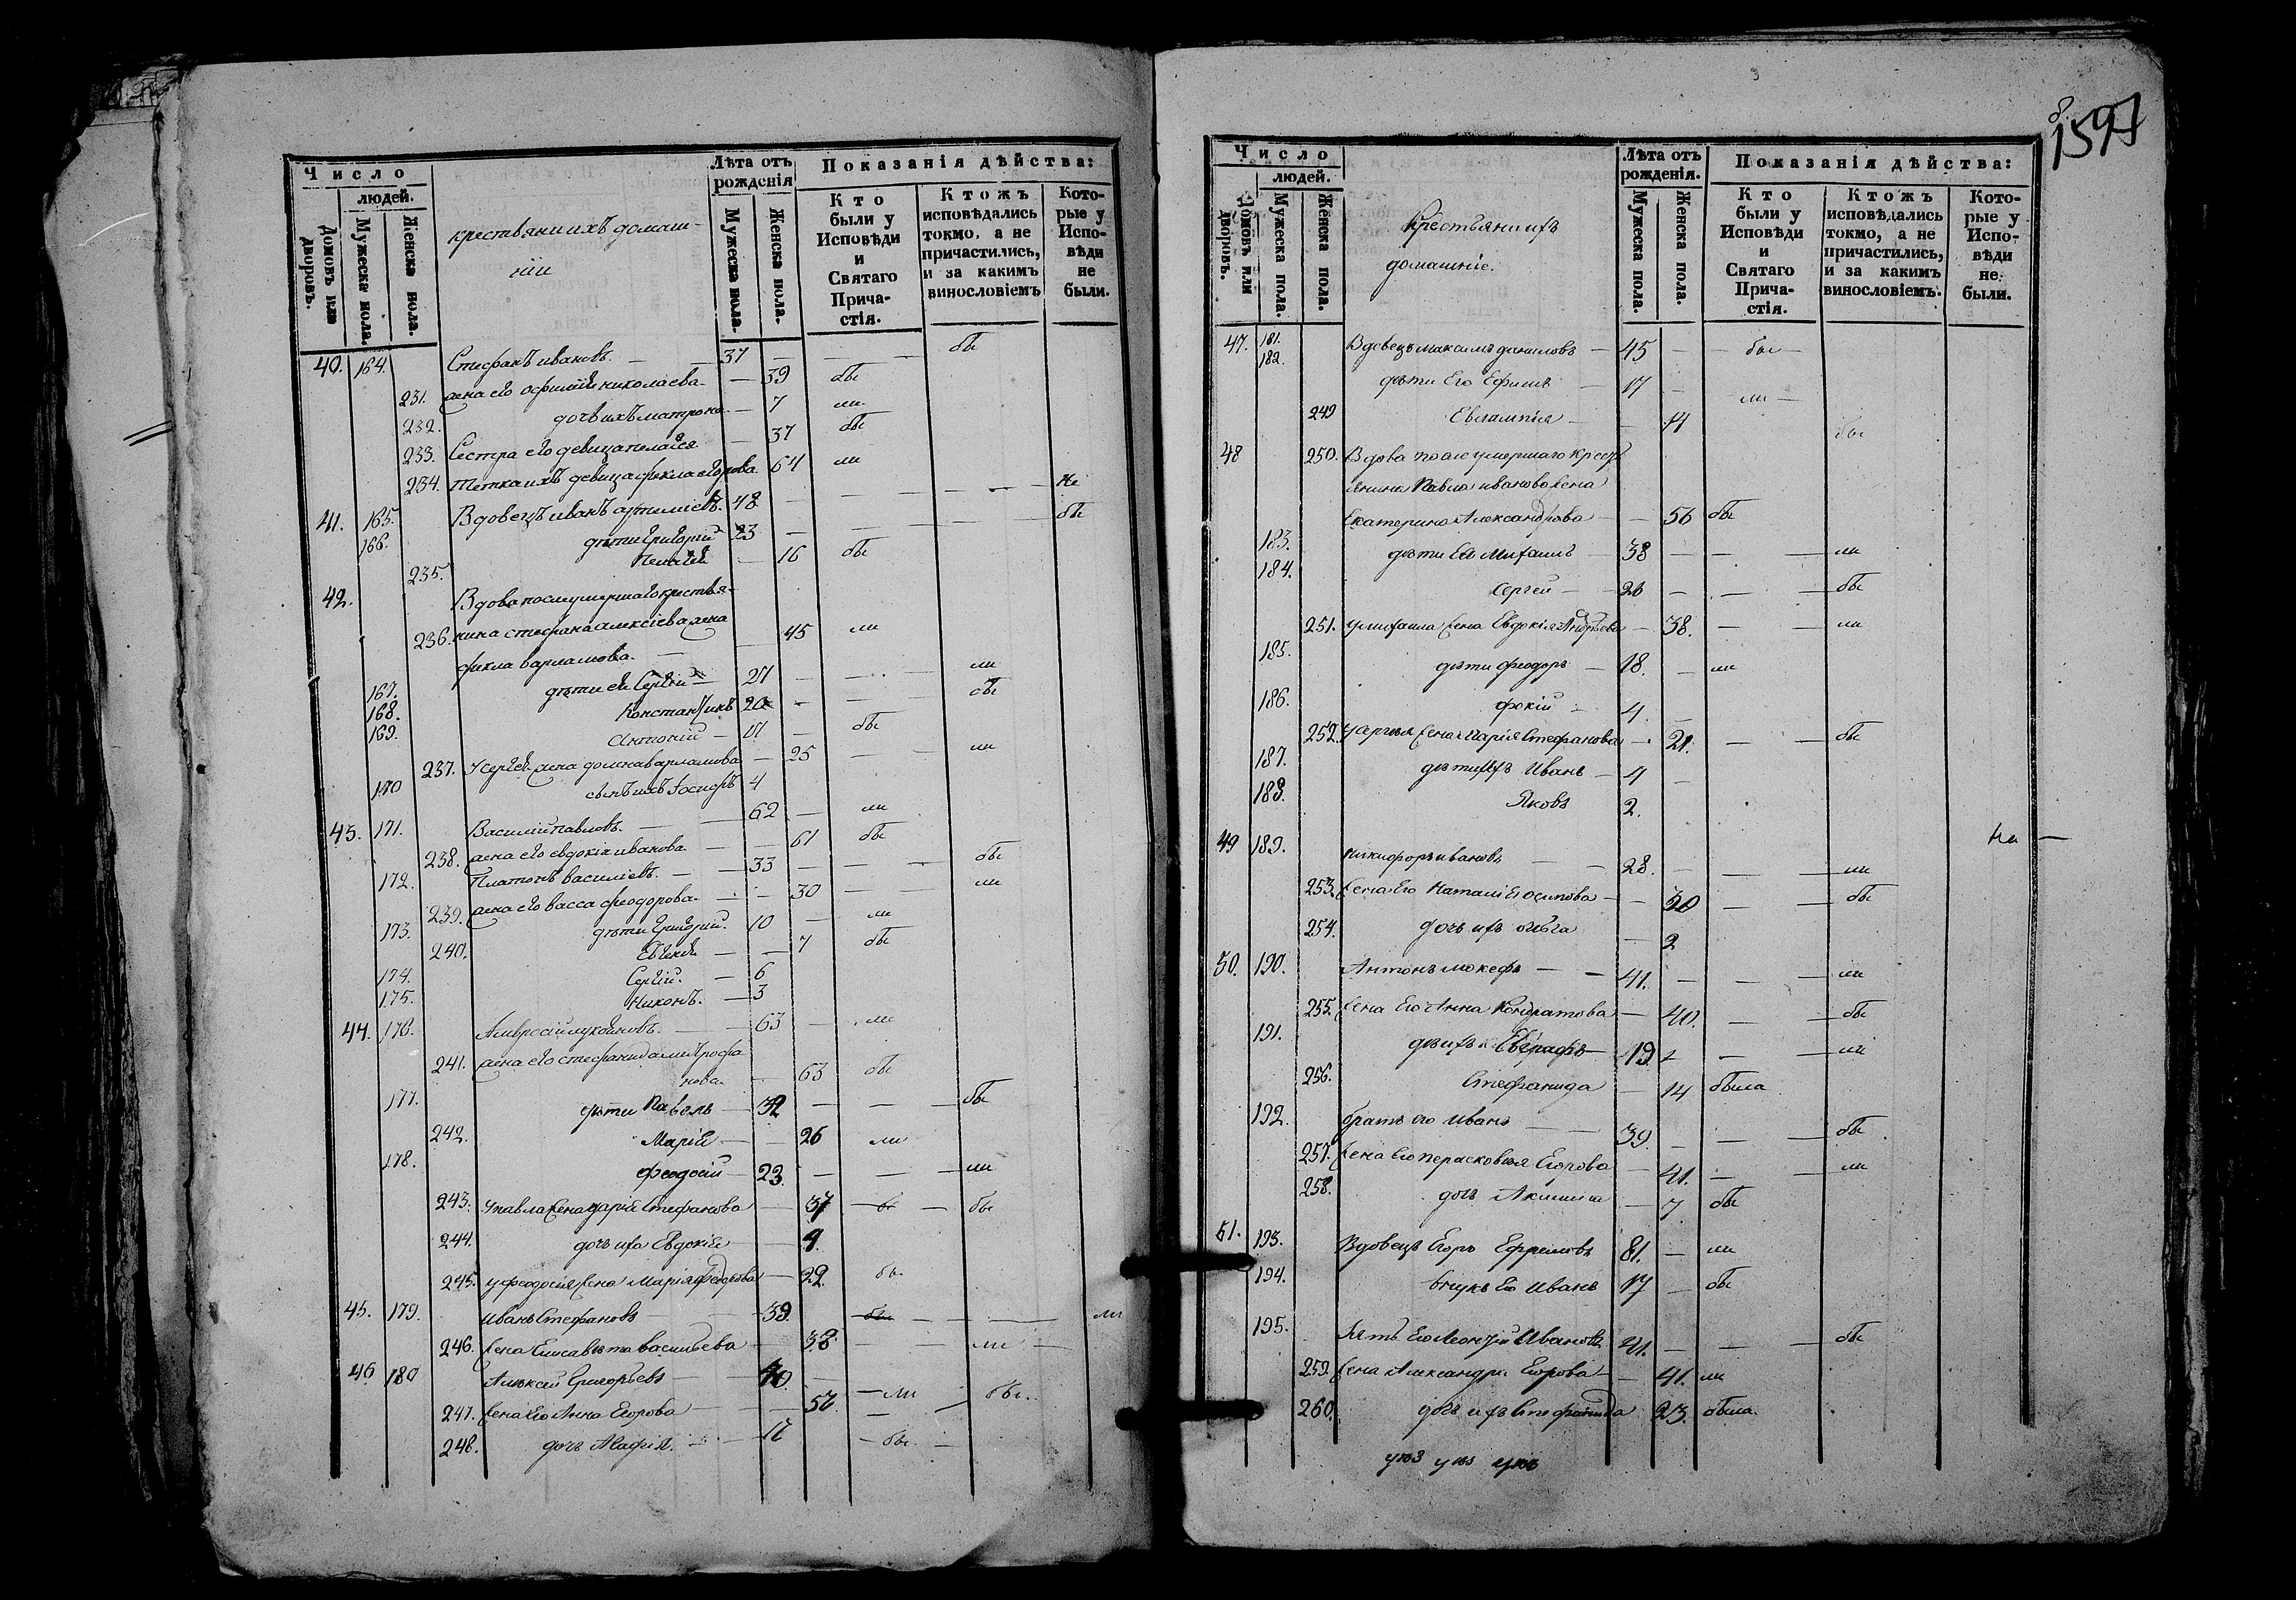 Число
людей.
Домовъ или дворовъ.
Мужеска пола.
Женска пола.
крестьяни ихъ домаш-
нiи
Лѣта отъ рожденiя
Мужеска пола.
Женска пола.
Показанiя дѣйства:
Кто были у Исповѣди и Святаго Прича-стiя.
Ктожъ исповѣдались токмо, а не причастились, и за какимъ винословiемъ
Кото-рые у Испо-вѣди не были.
40. 164. Стефанъ ивановъ. — 37 — — бы
231. жена его николаева — 39 бы
232. дочь ихъ матрона — 7 ли
233. Сестра его девица пелагея — 37 бы
234. тетка ихъ девица фекла егорова 64 ли
41. 165. Вдовецъ иванъ 48 — — — не
166. дѣти григорий 23 — — — бы
235. Пелагея — 16 бы
42. Вдова после умершаго крестья-
236. нина стефана алексiева жена 45 ли
фекла варламова. —
167. дѣти ея Сергiй — 27 — — ли
168. Константинъ 20 — бы
169. Антонiй — 17 — бы
237. У сергея жена домна варламова — 25 — ли
170 сынъ ихъ Iосифъ 4
43. 171. Василiй павловъ. — 62 — ли
238. жена его евдокiя иванова — 61 бы
172. Платонъ василiевъ. — 33 — — бы
239. жена его васса феодорова — 30 — ли
173. дѣти григорiй. 10 — ли
240. — 7 бы
174. Сергiй. — 6
175. Никонъ. — 3
44. 176. Амвросiй — 63 — ли
241. жена его стефанида митрофа
нова — 63 бы
177. дѣти Павелъ — 32 — — бы
242. Марiя — 26 ли
178. феодосiй — 23. — — ли
243. у павла жена марiя Стефанова — 37 — бы
244. дочь ихъ Евдокiя — 9.
245. у феодосiя жена Марiя Феодорова — 22. бы
45. 179. Иванъ Стефановъ — 39. — ли
246. жена Елисавета васильева — 38 — ли —
46 180 Алексей Григорьевъ — 40. —
247. жена его Анна Егорова — 50 — ли бы.
248. дочь Агафiя. — 17 — бы. —
1597
Число
людей.
Домовъ или дворовъ.
Мужеска пола.
Женска пола.
Крестьяни ихъ
домашнiе.
Лѣта отъ рожденiя.
Мужеска пола.
Женска пола.
Показанiя дѣйства:
Кто были у Исповѣди и Святаго Прича-стiя.
Ктожъ исповѣдались токмо, а не причастились, и за какимъ винословiемъ.
Кото-рые у Испо-вѣди не были.
47. 181. Вдовецъ максимъ даниловъ — 45 — бы —
182. дѣти Его Ефимъ — 17 — ли —
249 Евлампiя — 14 бы
48 250. Вдова после умершаго крест
янина Павла иванова жена
Екатерина Александрова — 56 бы
183. дѣти Ея Михаилъ — 38 — — ли
184. Сергей — 26 — — бы
251. у михаила жена Евдокiя Андреева — 38. — ли
185. дѣти феодоръ — 18. — ли
186. фокiй — 4. —
252. У сергея жена марiя Стефанова — 21. — бы
187. дѣти ихъ Иванъ — 4 —
188. Яковъ 2.
49 189. никифоръ ивановъ — 28. — — ли На —
253. жена его Наталiя осипова — 30 — бы
254. дочь ихъ — 2
50. 190. Антонъ — 41. — — ли
255. жена Его Анна Кондратова — 40. — бы
191. Евграфъ — 19 — — ли
256. Стефанида — 14 была
192. братъ его Иванъ — 39. — — бы
257. жена его перасковiя Егорова — 41. — ли
258. дочь Акилина — 7. бы
51. 193. Вдовецъ Егоръ Ефремовъ 81. — ли
194. внукъ Его Иванъ 17 — бы
195. Зять Его Леонтiй Ивановъ 41. — — бы
259. жена Александра Егорова — 41. ли
260. дочь ихъ Стефанида 23. была.